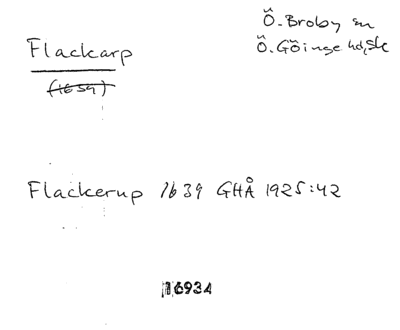 Flackarp
Ö. Broby sn
Ö. Göinge hd, Sk
(1659)
Flackerup 1639 GHÅ 1925:42
16934